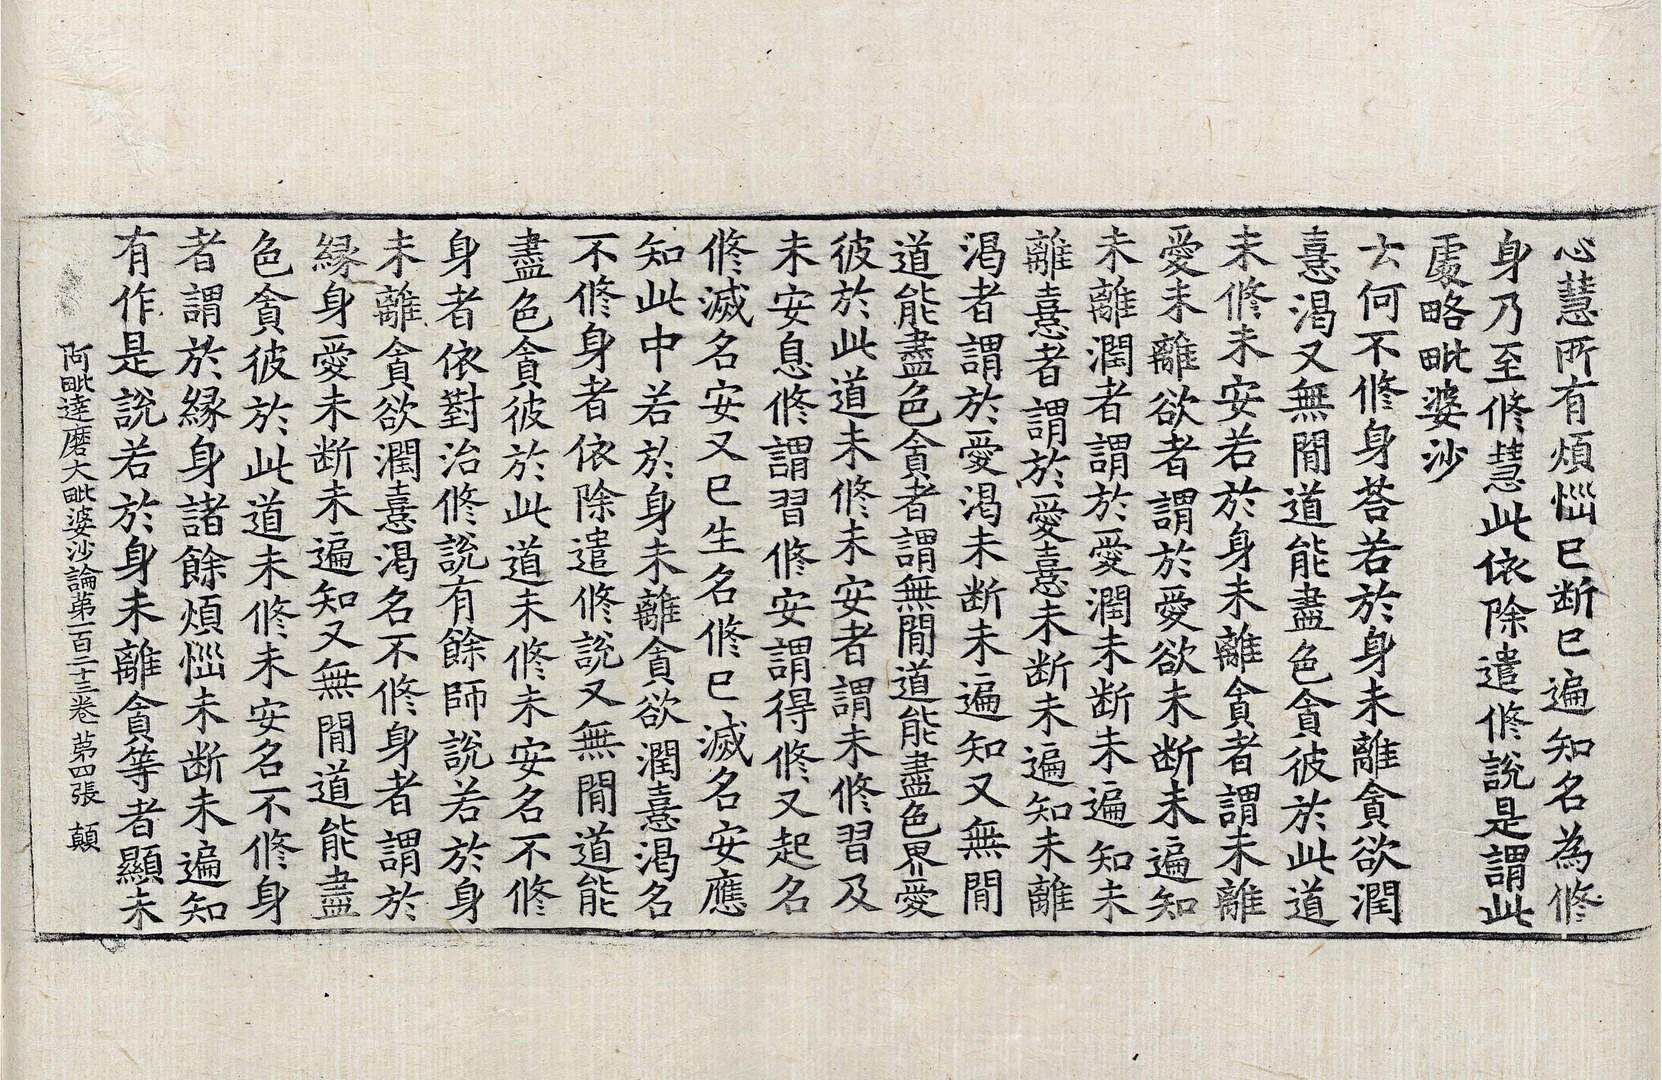 心慧所有煩惱已断已遍知名為修
身乃至修慧此依除遣修說是謂此
處略毗婆沙
云何不修身荅若於身未離貪欲潤
憙渴又無間道能盡色貪彼於此道
未修未安若於身未離貪者謂未離
愛未離欲者謂於愛欲未断未遍知
未離潤者謂於愛潤未断未遍知未
離憙者謂於愛憙未断未遍知未離
渴者謂於愛渴未断未遍知又無間
道能盡色貪者謂無間道能盡色界愛
彼於此道未修未安者謂未修習及
未安息修謂習修安謂得修又起名
修滅名安又已生名修已滅名安應
知此中若於身未離貪欲潤憙渴名
不修身者依除遣修說又無間道能
盡色貪彼於此道未修未安名不修
身者依對治修說有餘師說若於身
未離貪欲潤憙渴名不修身者謂於
緣身愛未断未遍知又無間道能盡
色貪彼於此道未修未安名不修身
者謂於緣身諸餘煩惱未断未遍知
有作是說若於身未離貪等者顯未
阿毗達磨大毗婆沙論第一百二十三卷 第四張 顛